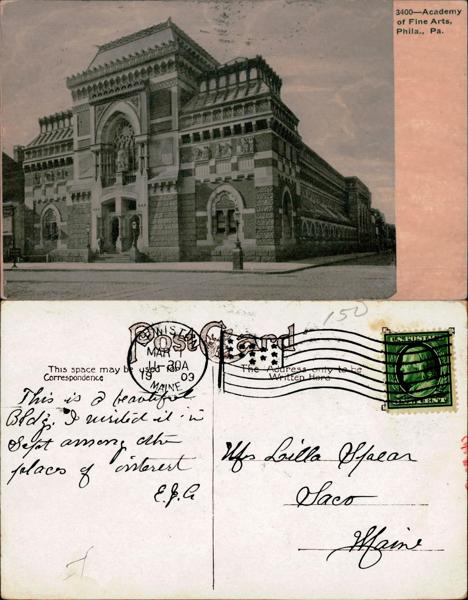 3400—Academy
of Fine Arts,
Phila., Pa.
150
Post Card
LEWISTON
MAR 1
11-30A
19 09
MAINE
U.S. POSTAGE
This space may be used for
Correspondence
The Address only to be
Written Here
This is a beautiful
Bldg. I visited it in
Sept among other
places of interest
E.J.G
Mrs Loilla Spear
Saco
Maine